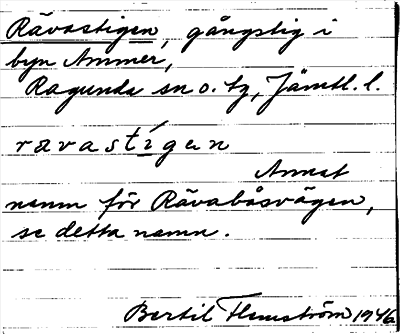 Rävastigen, gångstig i
byn Ammer,
Ragunda sn o. tg, Jämtl. l.
ravastígen
Annat
namn för Rävabåsvägen,
se detta namn.
Bertil Flemström 1946